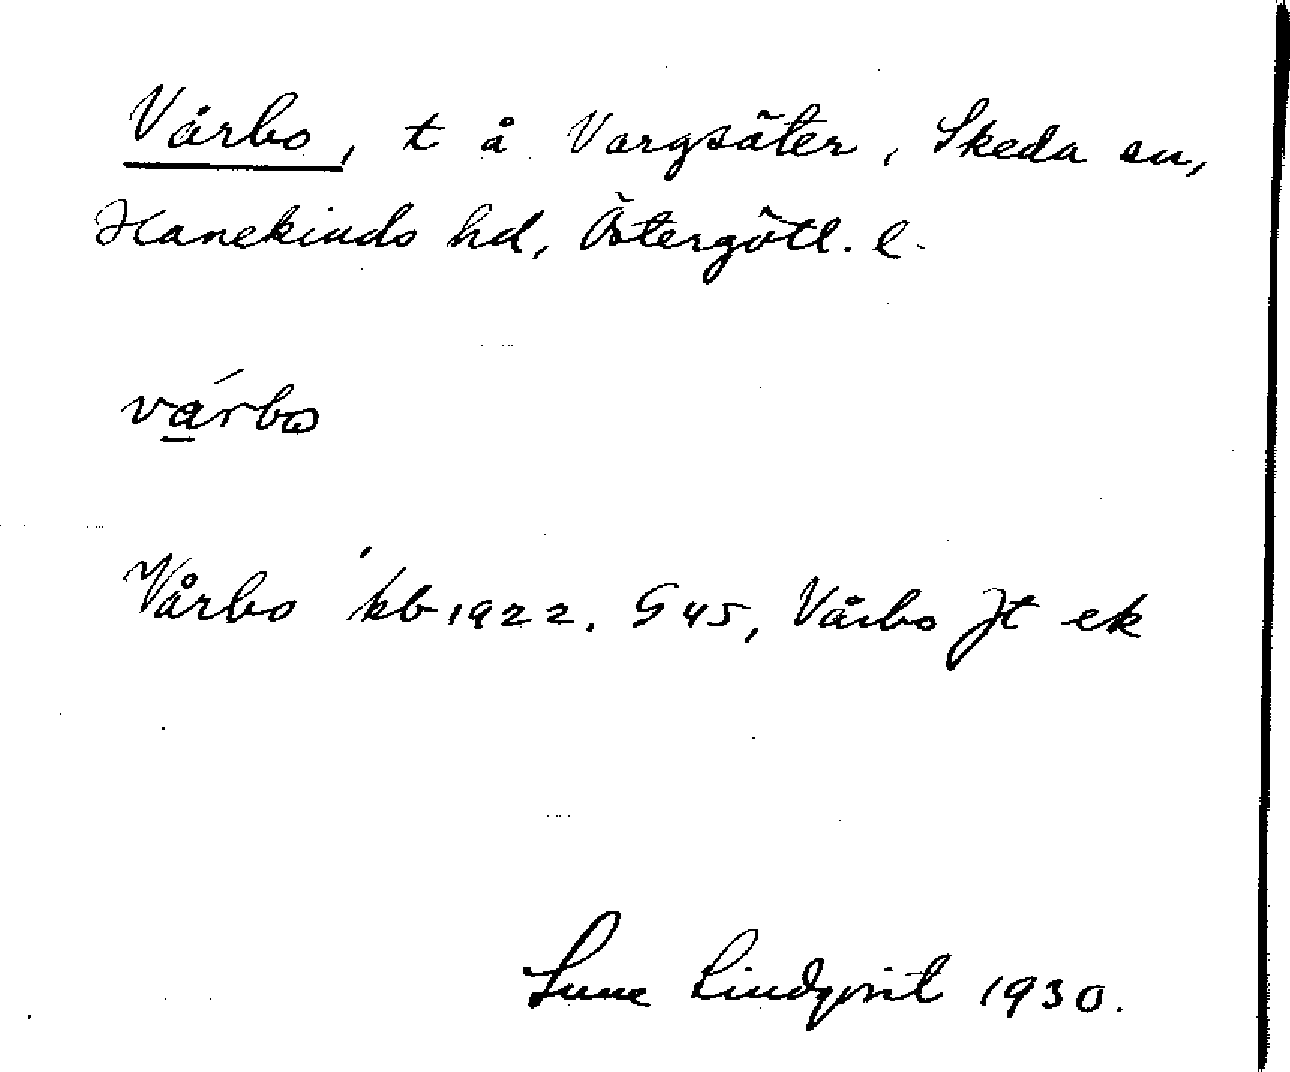 Vårbo, t å Vargsäter, Skeda sn,
Hanekinds hd, Östergötl. l.
vá̲rbω
Vårbo kb 1922. G 45, Vårbo Jt ek
Sune Lindqvist 1930.